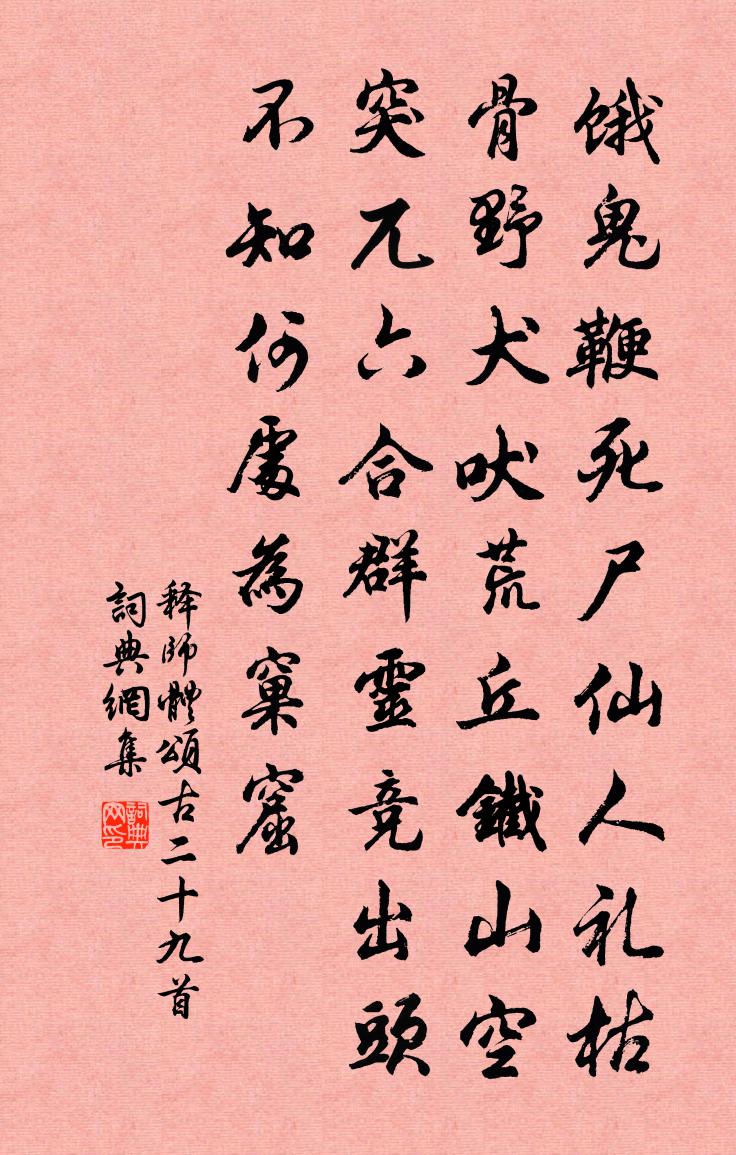 餓鬼鞭死尸仙人礼枯
骨野犬吠荒丘鐵山空
突兀六合群靈竞出頭
不知何處為窠窟
释師體頌古二十九首
詞典網集
詞典網印